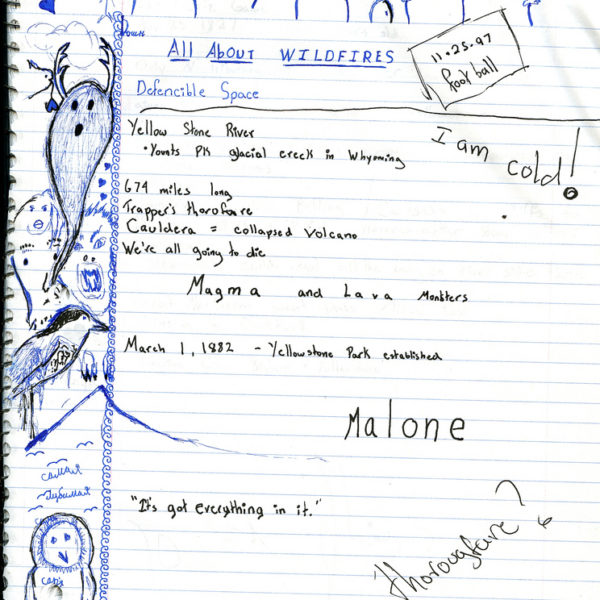 All About WILDFIRES
11.25.97
foot ball
Defencible Space
I am cold!
Yellow Stone River
• Younts PK glacial creek in Whyoming
674 miles long
Trapper's thorofare
Cauldera = collapsed Volcano
We're all going to die
Magma and Lava Monsters
March 1, 1882 - Yellowstone Park established
Malone
"It's got everything in it."
Thoroughfare?